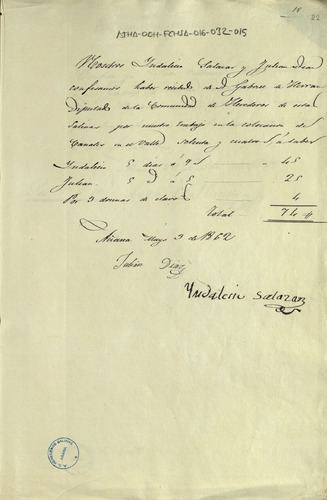 18
22
ATHA-DOH-FCHSA-016-032-015
Nosotros Yndalecio Salazar y Julian Diaz
confesamos haber recibido de D Gabriel de Herran
Diputado de la Comunidad de Herederos de estas
Salinas por nuestro trabajo en la colocacion de
Canales en el Valle setenta y cuatro r.s á saber
Yndalecio 5 dias á 9 r.s 45
Julian 5 D á 5 25
Por 3 docenas de clavos 4
Total 74
Añana Mayo 3 de 1862
Julian Diaz
Yndalecio Salazar